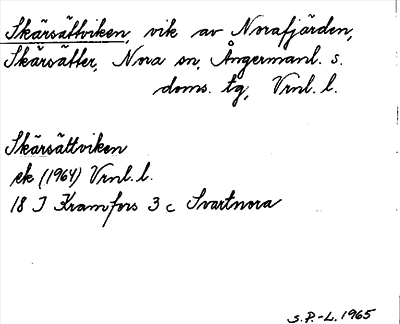 Skärsättviken, vik av Norafjärden,
Skärsätter, Nora sn, Ångermanl. s.
doms. tg, Vrnl. l.
Skärsättviken
ek (1964) Vrnl. l.
18 I Kramfors 3 c Svartnora
S.P.-L. 1965